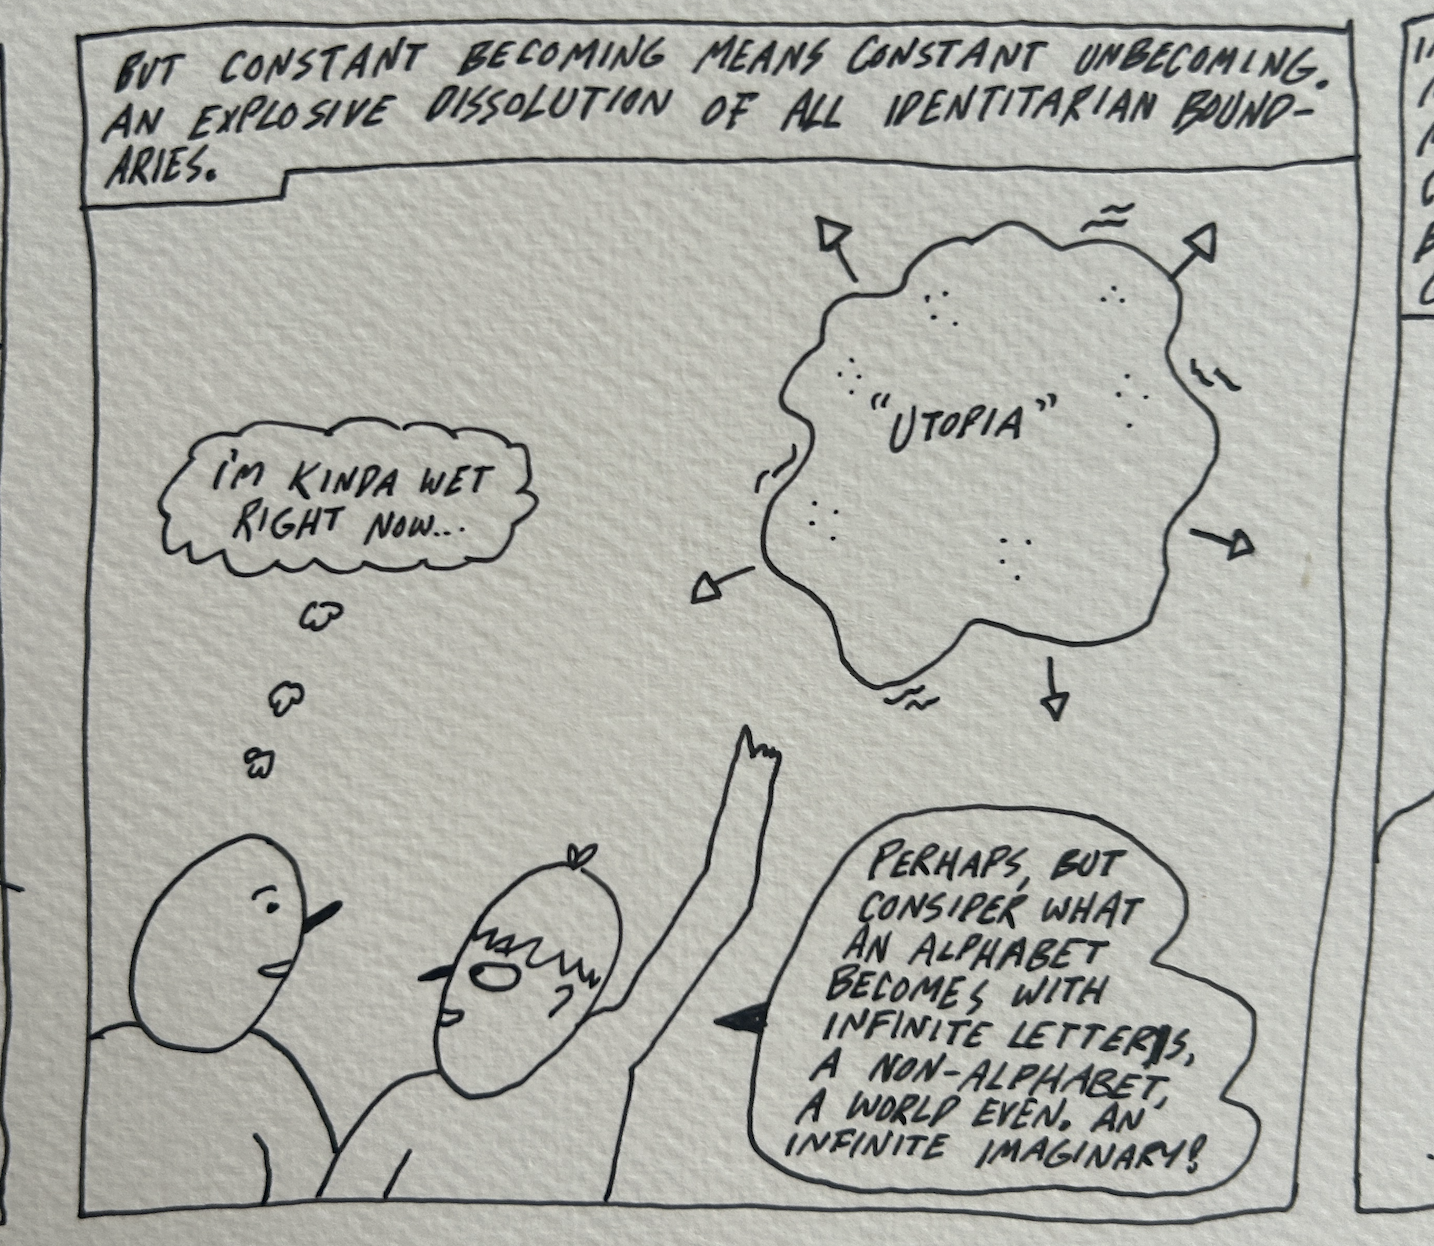 BUT CONSTANT BECOMING MEANS CONSTANT UNBECOMING.
AN EXPLOSIVE DISSOLUTION OF ALL IDENTITARIAN BOUND-
ARIES.
"UTOPIA"
I'M KINDA WET
RIGHT NOW...
PERHAPS, BUT
CONSIDER WHAT
AN ALPHABET
BECOMES WITH
INFINITE LETTERS,
A NON-ALPHABET,
A WORLD EVEN. AN
INFINITE IMAGINARY!